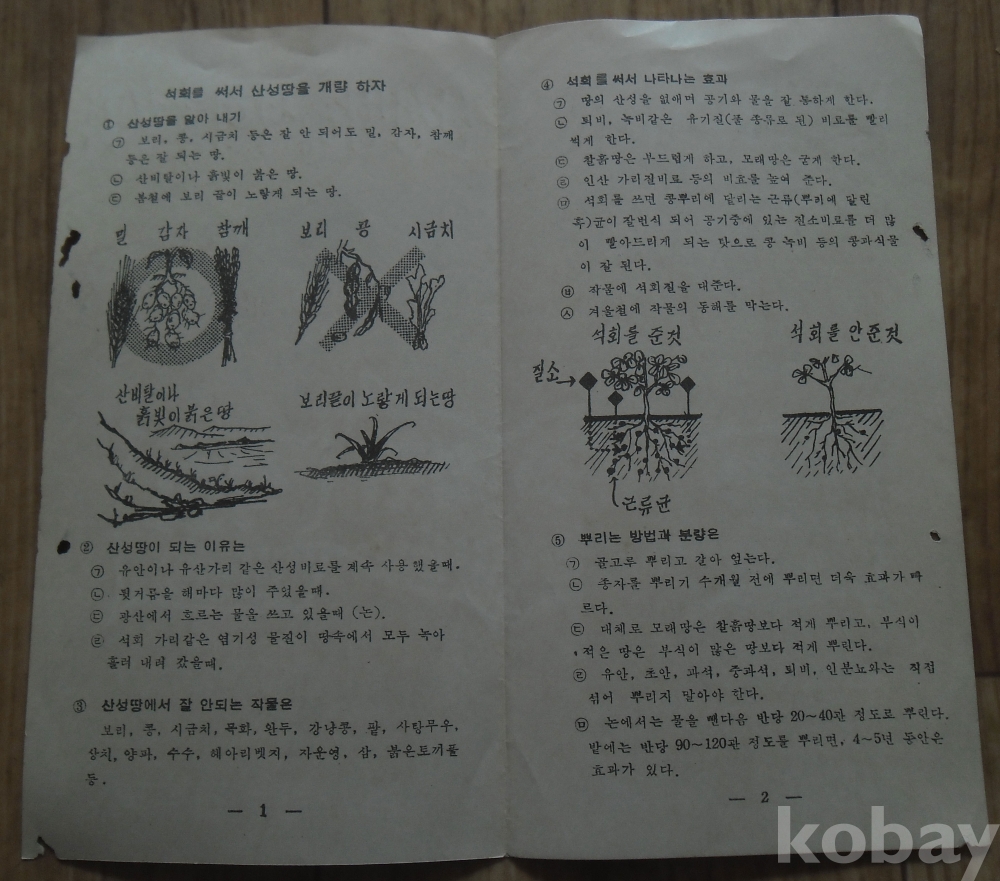 석회를 써서 산성땅을 개량 하자
① 산성땅을 알아 내기
㉠ 보리, 콩, 시금치 등은 잘 안 되어도 밀, 감자, 참깨
등은 잘 되는 땅.
㉡ 산비탈이나 흙빛이 붉은 땅.
㉢ 봄철에 보리 끝이 노랗게 되는 땅.
밀 감자 참깨
보리 콩 시금치
산비탈이나
흙빛이 붉은 땅
보리끝이 노랗게 되는땅
② 산성땅이 되는 이유는
㉠ 유안이나 유산가리 같은 산성비료를 계속 사용했을때.
㉡ 뒷거름을 해마다 많이 주었을때.
㉢ 광산에서 흐르는 물을 쓰고 있을때 (논).
㉣ 석회 가리같은 염기성 물질이 땅속에서 모두 녹아
흘러 내려 갔을때.
③ 산성땅에서 잘 안되는 작물은
보리, 콩, 시금치, 목화, 완두, 강낭콩, 팥, 사탕무우,
상치, 양파, 수수, 헤아리벳지, 자운영, 삼, 붉은토끼풀
등.
— 1 —
④ 석회를 써서 나타나는 효과
㉠ 땅의 산성을 없애며 공기와 물을 잘 통하게 한다.
㉡ 퇴비, 녹비같은 유기질(풀 종류로 된) 비료를 빨리
썩게 한다.
㉢ 찬흙땅은 부드럽게 하고, 모래땅은 굳게 한다.
㉣ 인산 가리질비료 등의 비효를 높여 준다.
㉤ 석회를 쓰면 콩뿌리에 달리는 근류(뿌리에 달린
혹)균이 잘번식 되어 공기중에 있는 질소비료를 더 많
이 빨아드리게 되는 탓으로 콩 녹비 등의 콩과식물
이 잘 된다.
㉥ 작물에 석회질을 대준다.
㉦ 겨울철에 작물의 동해를 막는다.
석회를 준것
석회를 안준것
질소→
근류균
⑤ 뿌리는 방법과 분량은
㉠ 골고루 뿌리고 갈아 엎는다.
㉡ 종자를 뿌리기 수개월 전에 뿌리면 더욱 효과가 빠
르다.
㉢ 대체로 모래땅은 찰흙땅보다 적게 뿌리고, 부식이
적은 땅은 부식이 많은 땅보다 적게 뿌린다.
㉣ 유안, 초안, 과석, 중과석, 퇴비, 인분뇨와는 직접
섞어 뿌리지 말아야 한다.
㉤ 논에서는 물을 뺀다음 반당 20～40관 정도로 뿌린다.
밭에는 반당 90～120관 정도를 뿌리면, 4～5년 동안은
효과가 있다.
— 2 —
kobay